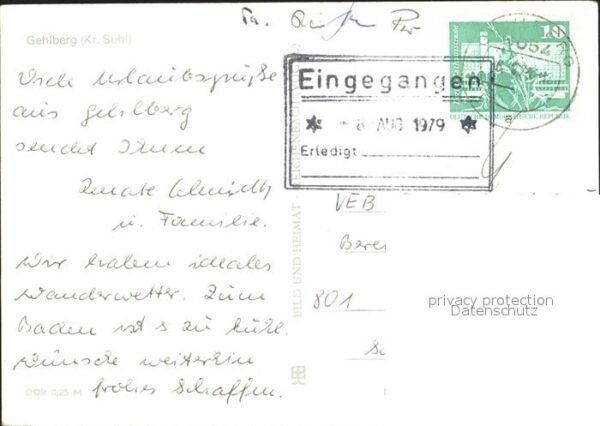 Gehlberg (Kr. Suhl)
Viele Urlaubsgrüße
aus Gehlberg
sendet Ihnen
Renate Schmidt
u. Familie.
Wir haben ideales
Wanderwetter. Zum
Baden ist s zu kühl.
Wünsche weiterhin
frohes Schaffen.
DDR 0,25 M
BILD UND HEIMAT
REICHENBACH
Eingegangen
- 8. AUG 1979
Erledigt
10
DEUTSCHE DEMOKRATISCHE REPUBLIK
VEB
Bere
801
privacy protection
Datenschutz